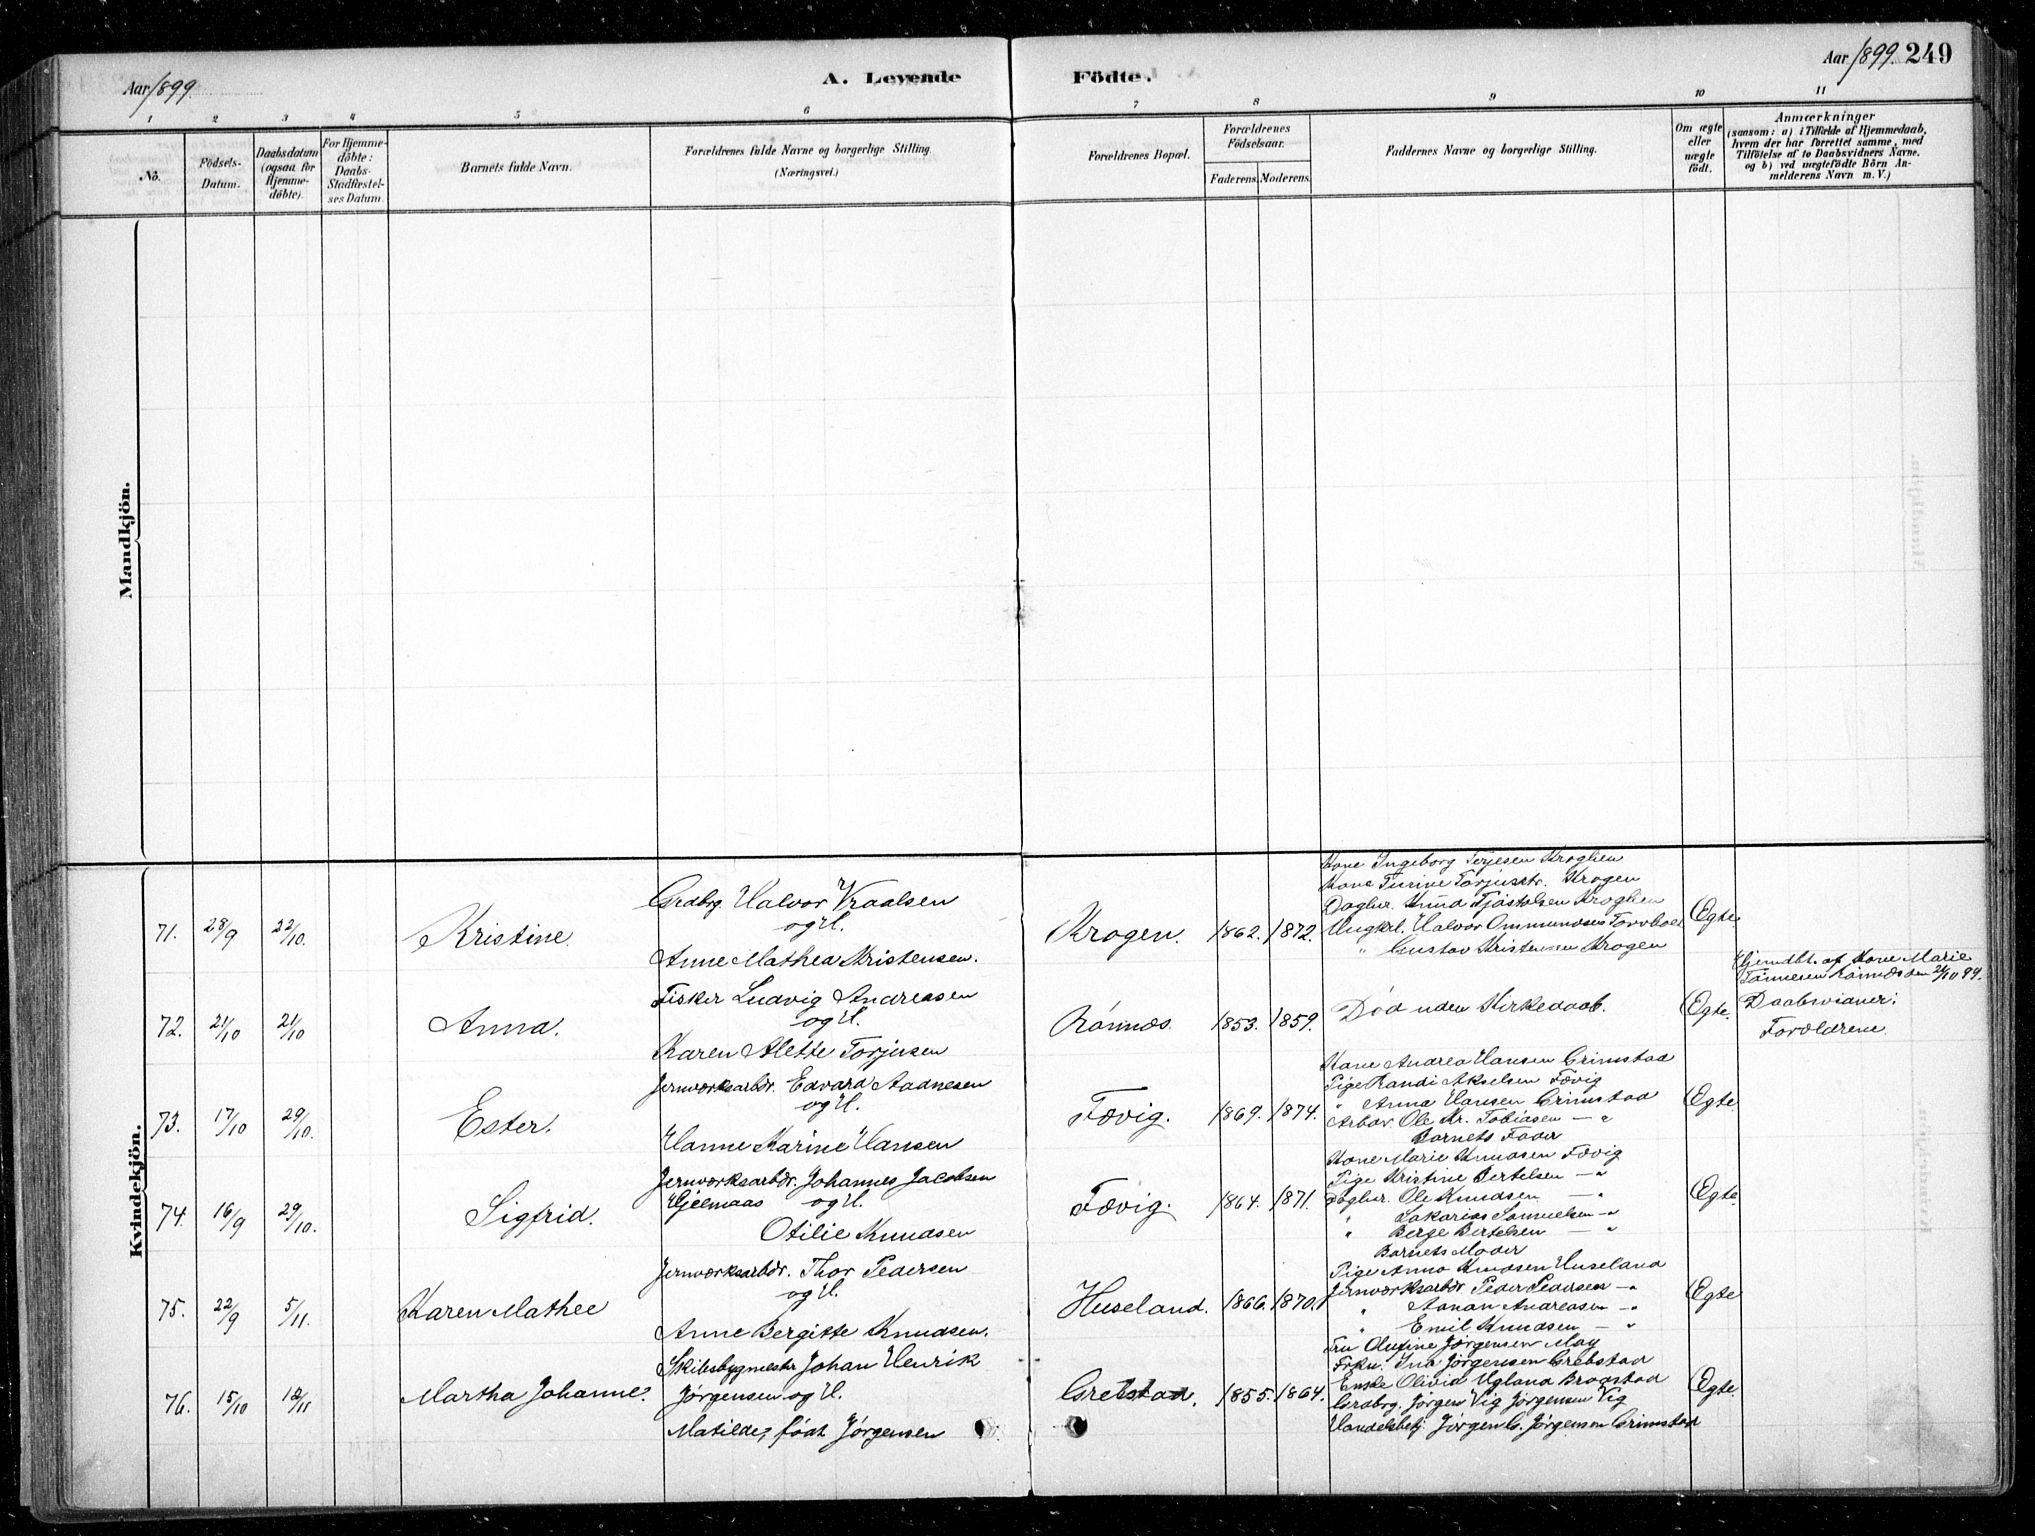 Aar 1899.
A. Levende
Födte.
Aar 1899. 249
1 2 3 4 5 6 7 8 9 10 11
No.
Födsels-
Datum.
Daabsdatum
(ogsaa for
Hjemme-
döbte).
For Hjemme-
döbte:
Daabs-
Stadfæstel-
ses Datum.
Barnets fulde Navn.
Forældrenes fulde Navne og borgerlige Stilling.
(Næringsvei.)
Forældrenes Bopæl.
Forældrenes
Födselsaar.
Faderens. Moderens.
Faddernes Navne og borgerlige Stilling.
Om ægte
eller
uægte
födt.
Anmærkninger
(saasom: a) i Tilfælde af Hjemmedaab,
hvem der har forrettet samme, med
Tilföielse af to Daabsvidners Navne.
og b) ved uægtefödte Börn An-
melderens Navn m. V.)
Mandkjön.
Kvindekjön.
71. 28/9 22/10. Kristine.
Grdbrg. Halvor Vraalsen
og H.
Anne Mathea Kristensen.
Krogen. 1862. 1872.
Kone Ingeborg Terjesen Kroghen
Kone Turine Torjusstr. Krogen
Dagbr. Knud Tjöstolsen Kroghen
Ungkrl. Halvor Ommundsen Torvboel
" Gustav Kristensen Krogen
Ægte.
72. 21/10 21/10 Anna.
Fisker Ludvig Andreasen
og H.
Karen Alette Torjusen
Rönnes. 1853. 1859.
Död uden Kirkedaab.
Ægte.
Hjemdbt. af Kone Marie
Tönnesen Rönnes den 21/10 99.
Daabsvidner:
Forældrene.
73. 17/10 29/10. Ester.
Jernværksarbdr. Edvard Aadnesen
og H.
Hanne Karine Hansen
Fævig. 1869. 1874.
Kone Andrea Hansen Grimstad
Pige Randi Akselsen Fævig
" Anna Hansen Grimstad
Arbdr. Ole Kr. Tobiasen — "
Barnets Fader
Ægte.
74. 16/9 29/10. Sigfrid.
Jernværksarbdr. Johannes Jacobsen
Hjelmaas og H.
Otilie Knudsen
Fævig. 1864. 1871.
Kone Marie Knudsen Fævig
Pige Kristine Bertelsen — "
Dagbr. Ole Knudsen — "
" Sakarias Samuelsen — "
" Berge Bertelsen — "
Barnets Moder
Ægte.
75. 22/9 5/11. Karen Mathee
Jernværksarbdr. Thor Pedersen
og H.
Anne Bergitte Knudsen.
Huseland. 1866. 1870.
Pige Anna Knudsen Huseland
Jernværksarbdr. Peder Pedersen — "
" Aanan Andreasen — "
" Emil Knudsen — "
Ægte
76. 15/10 12/11 Martha Johanne.
Skibsbygmester Johan Henrik
Jörgensen og H.
Matilde, född Jörgensen
Grebstad. 1855. 1864.
Fru Olufine Jörgensen May
Frkn. Ina Jörgensen Grebstad
Enke Olivia Ugland Braastad
Grdbrg. Jörgen Vig Jörgensen Vig
Handelsbetj. Jörgen G. Jörgensen Grimstad
Ægte.